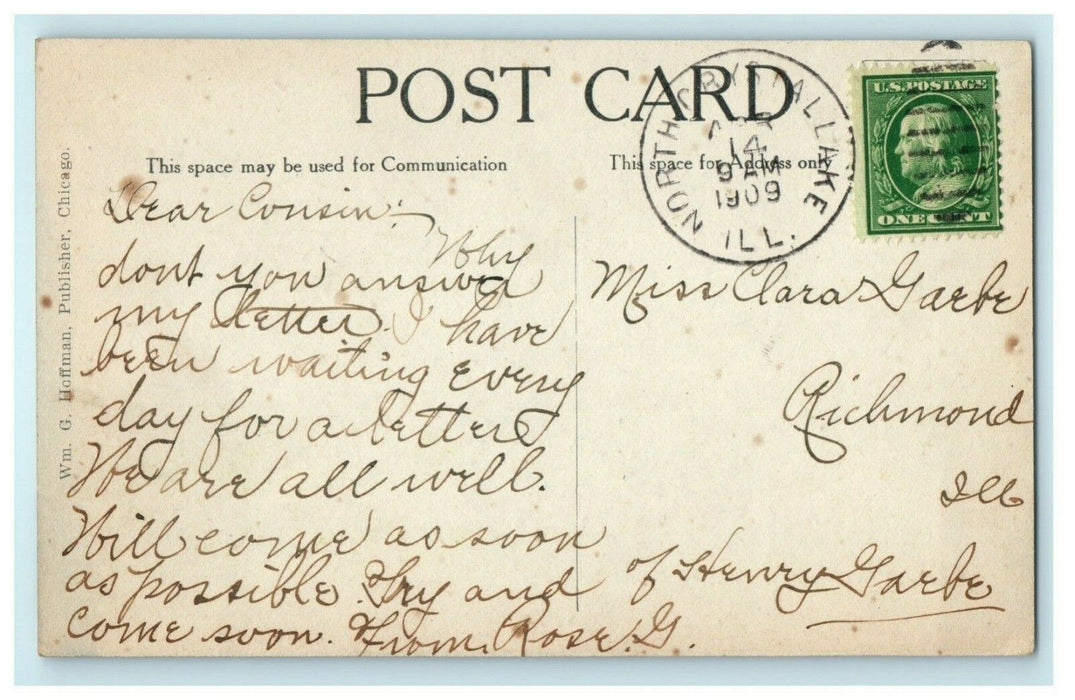 POST CARD
This space may be used for Communication
This space for Address only
NORTH CRYSTAL LAKE
14
9 AM
1909
ILL.
U.S. POSTAGE
ONE CENT
Wm. G. Hoffman, Publisher, Chicago.
Dear Cousin:
Why
dont you answer
my letter. I have
been waiting every
day for a letter
We are all well.
Will come as soon
as possible. Try and
come soon. From Rose G.
Miss Clara Garbe
Richmond
Ill
of Henry Garbe